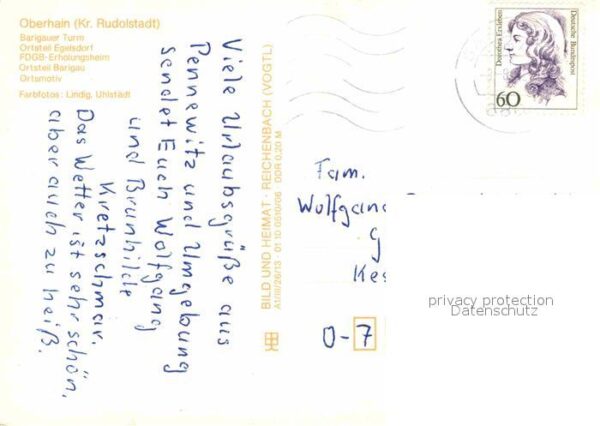 Oberhain (Kr. Rudolstadt)
Barigauer Turm
Ortsteil Egelsdorf
FDGB-Erholungsheim
Ortsteil Barigau
Ortsmotiv
Farbfotos: Lindig, Uhlstädt
Viele Urlaubsgrüße aus
Pennewitz und Umgebung
sendet Euch Wolfgang
und Brunhilde
Kretzschmar.
Das Wetter ist sehr schön,
aber auch zu heiß.
BILD UND HEIMAT · REICHENBACH (VOGTL)
A1/III/26/13 01 10 0510/06 DDR 0,20 M
Dorothea Erxleben
Deutsche Bundespost
60
Fam.
Wolfgang
G
Kes
O-7
privacy protection
Datenschutz